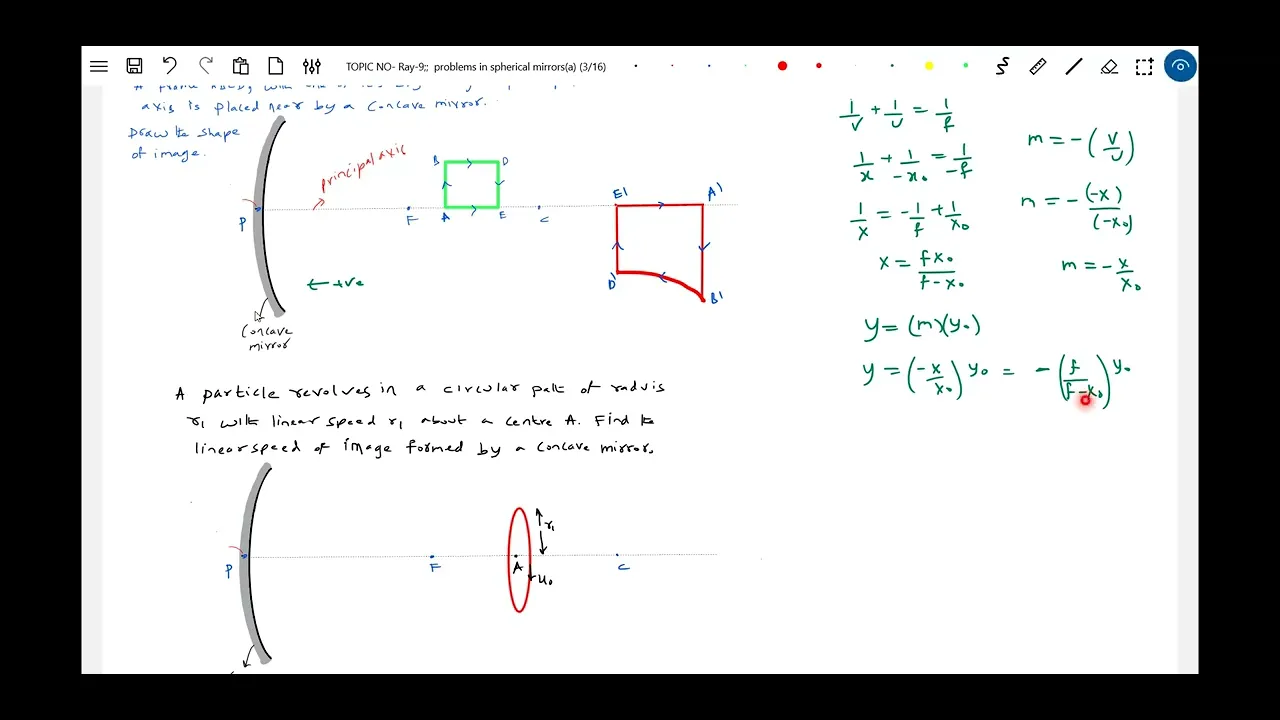 TOPIC NO- Ray-9;; problems in spherical mirrors(a) (3/16)
axis is placed near by a concave mirror.
Draw the shape
of image.
principal axis
B D
P F A E C
E' A'
D' B'
← +ve
Concave
mirror
1/v + 1/u = 1/f
1/x + 1/-x₀ = 1/-f
1/x = -1/f + 1/x₀
x = fx₀/f-x₀
m = -(v/u)
m = -(-x)/(-x₀)
m = -x/x₀
y = (m)(y₀)
y = (-x/x₀) y₀ = -(f/f-x₀) y₀
A particle revolves in a circular path of radius
r₁ with linear speed r₁ about a centre A. Find the
linear speed of image formed by a concave mirror.
r₁
P F A C
u₀